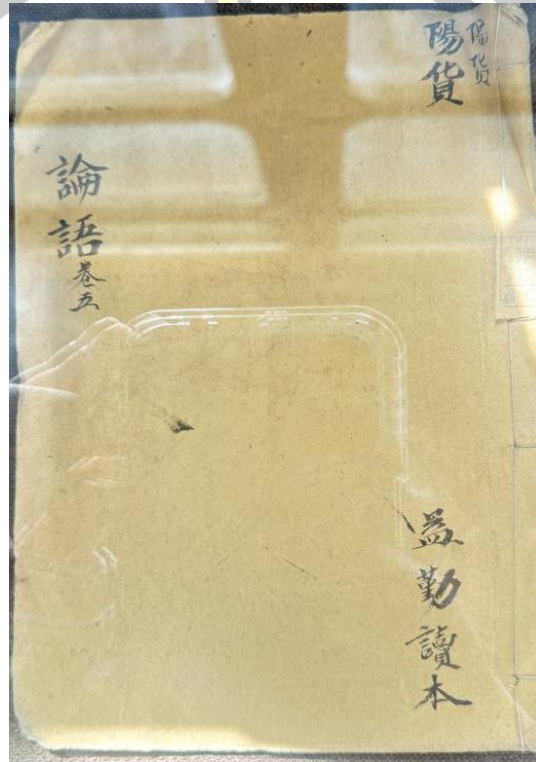 陽貨
陽貨
論語卷五
益勤讀本